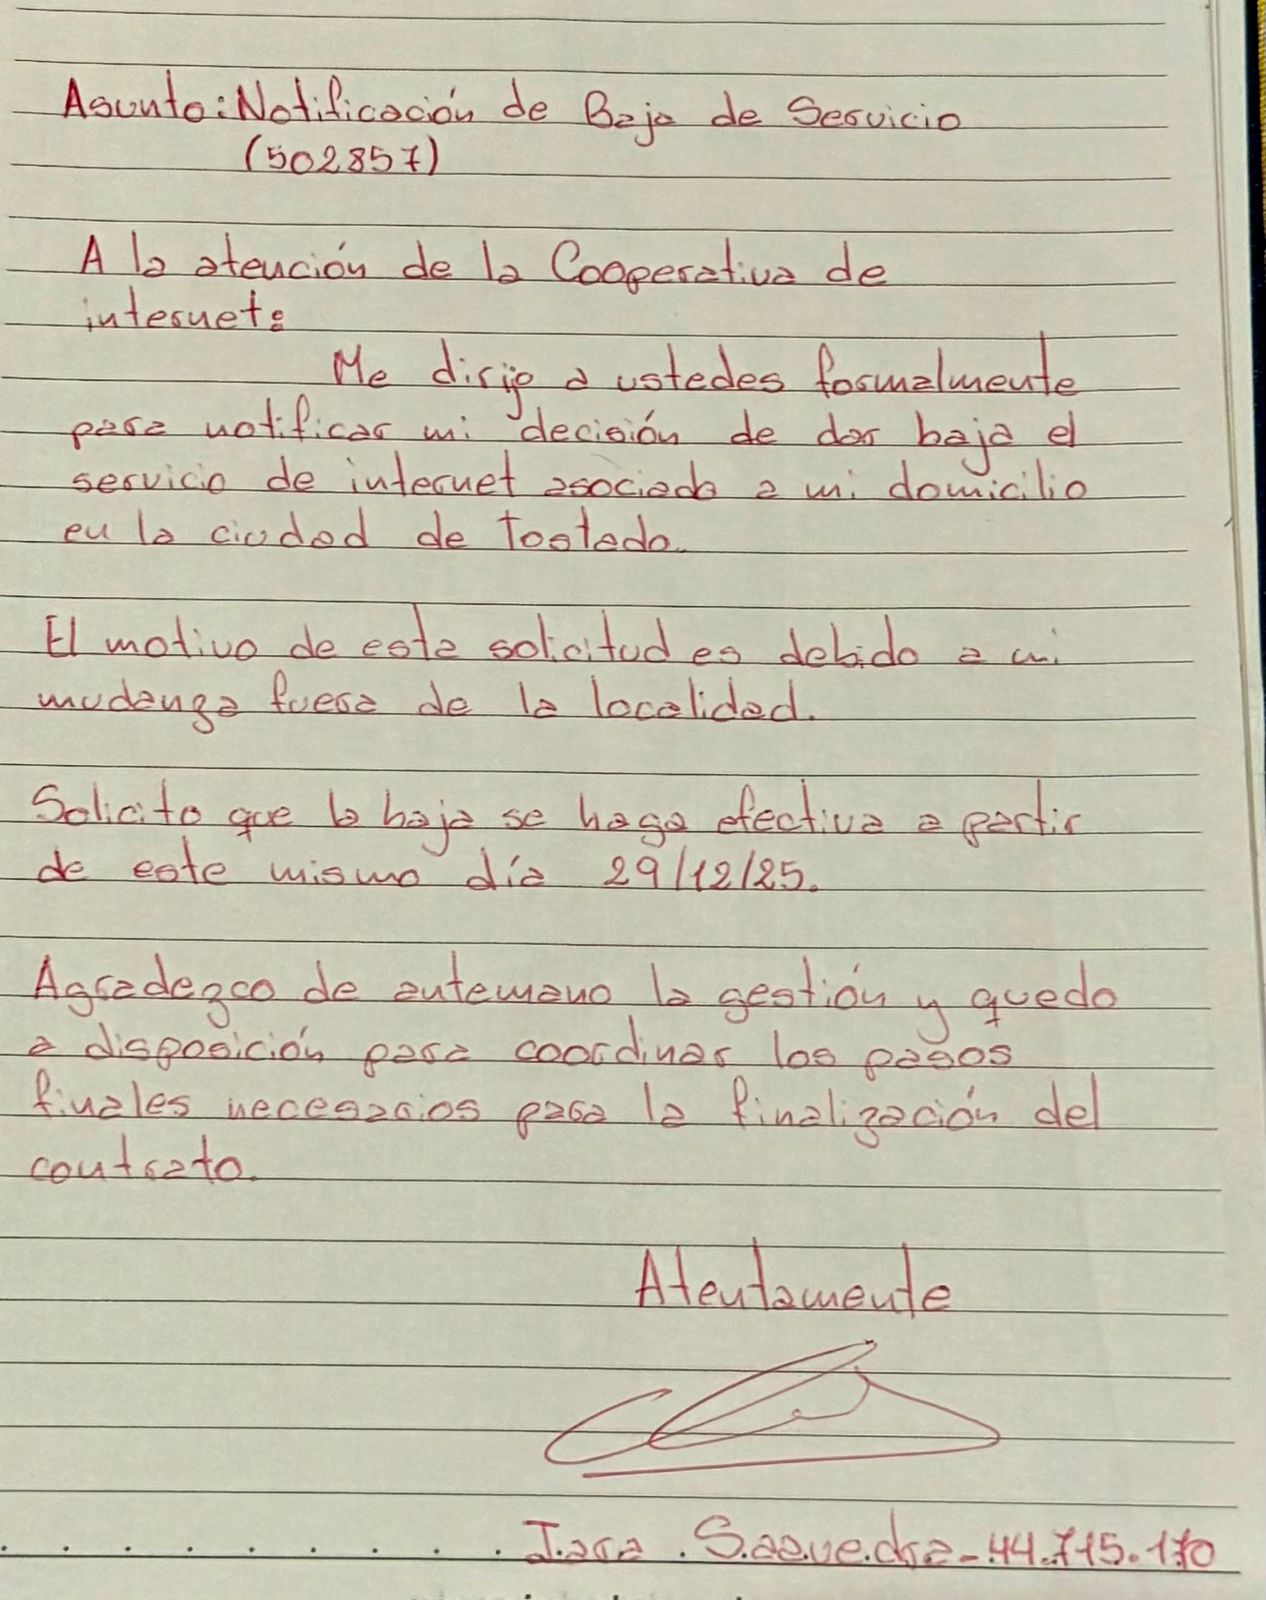 Asunto: Notificación de Baja de Servicio
(502857)
A la atención de la Cooperativa de
internet:
Me dirijo a ustedes formalmente
para notificar mi decisión de dar baja el
servicio de internet asociado a mi domicilio
en la ciudad de Tostado.
El motivo de esta solicitud es debido a mi
mudanza fuera de la localidad.
Solicito que la baja se haga efectiva a partir
de este mismo día 29/12/25.
Agradezco de antemano la gestión y quedo
a disposición para coordinar los pasos
finales necesarios para la finalización del
contrato.
Atentamente
Jara Saavedra - 44.715.170